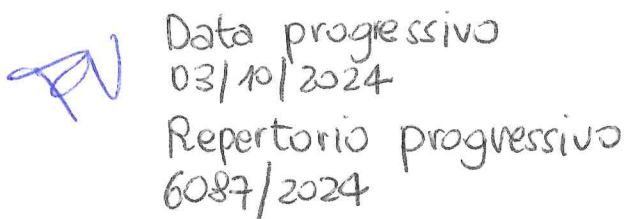 Data progressivo
03/10/2024
Repertorio progressivo
6087/2024